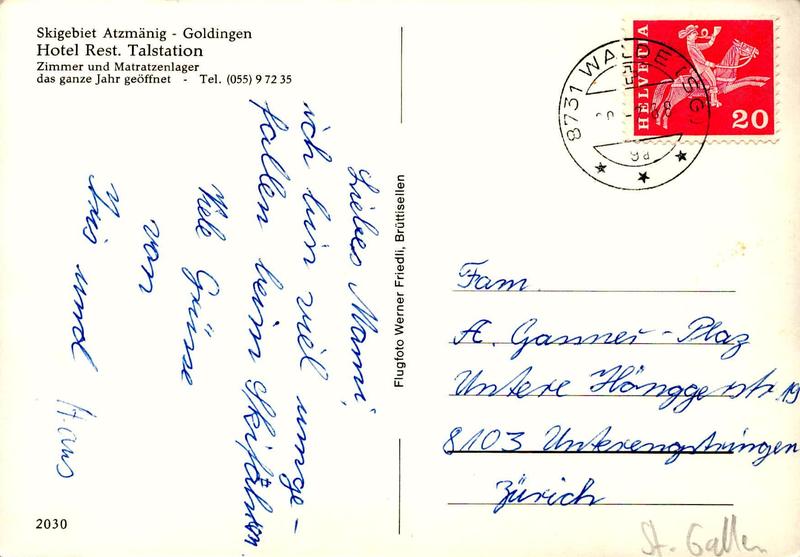 Skigebiet Atzmänig - Goldingen
Hotel Rest. Talstation
Zimmer und Matratzenlager
das ganze Jahr geöffnet - Tel. (055) 9 72 35
Liebes Mami,
ich bin viel umge-
fallen beim Skifahren
Viele Grüsse
von
Iris und Hans
2030
Flugfoto Werner Friedli, Brüttisellen
8731 WALDE (SG)
HELVETIA
20
Fam.
A. Ganner-Plaz
Untere Hönggerstr. 19
8103 Unterengstringen
Zürich
St. Gallen